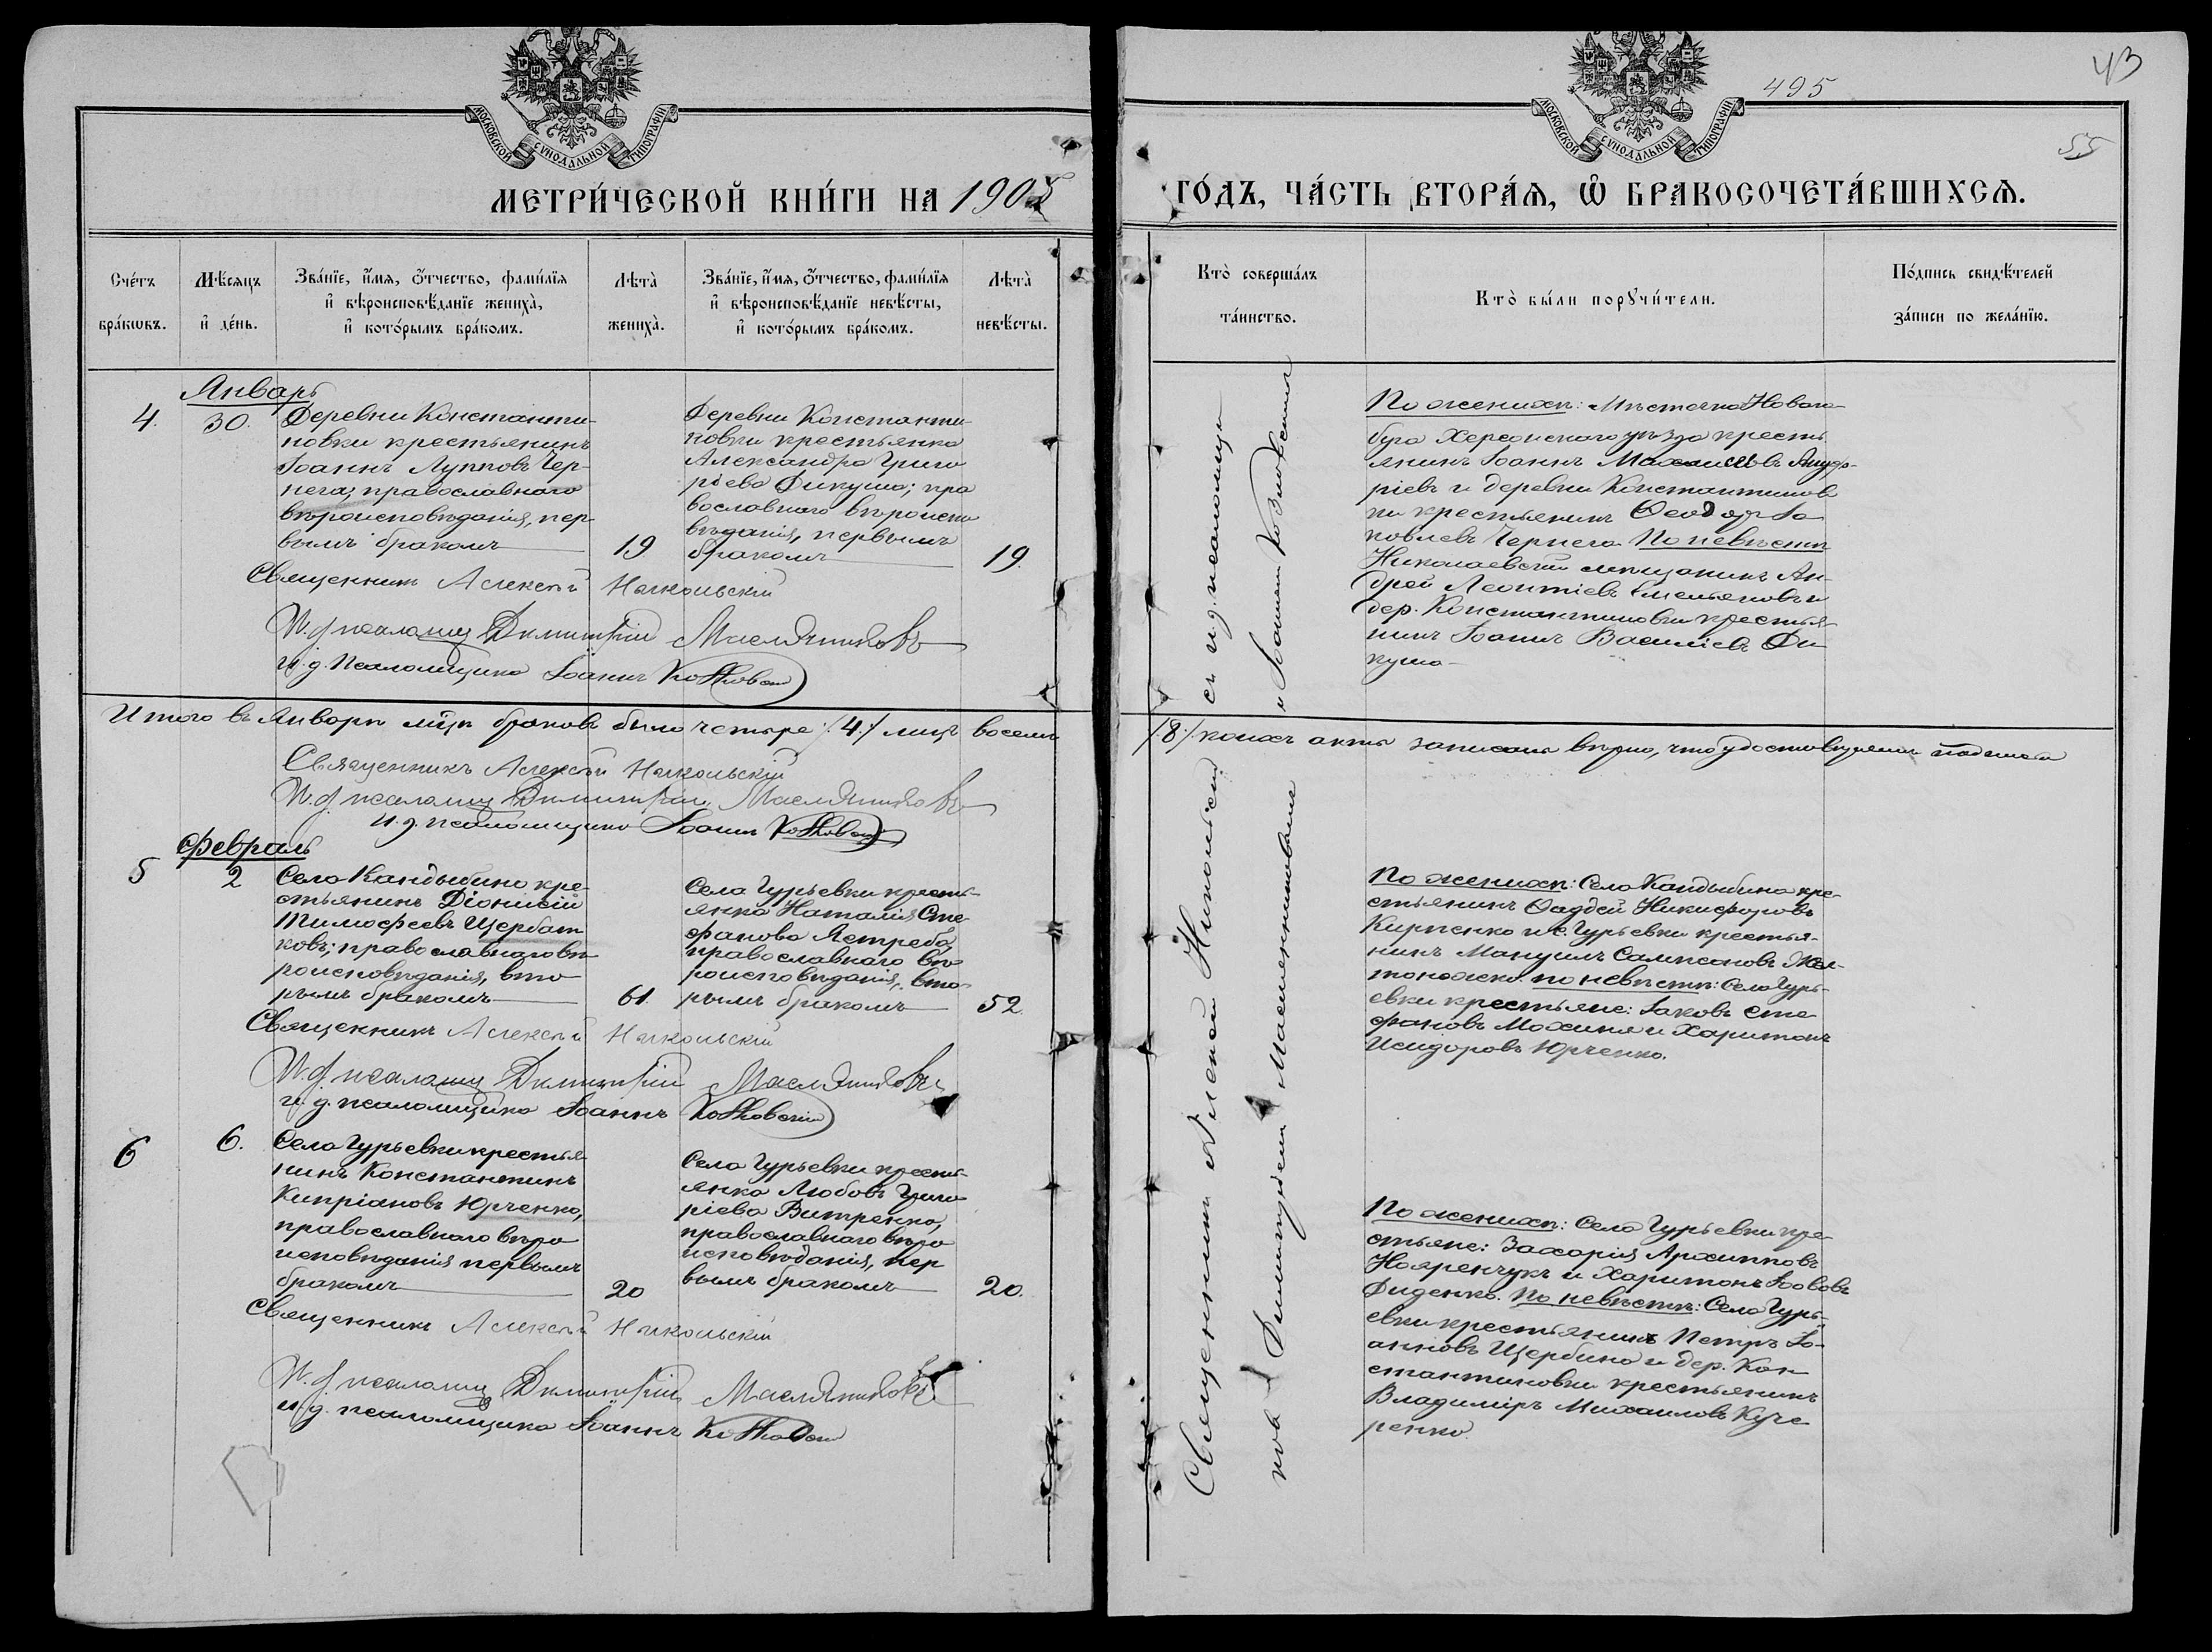 МОСКОВСКОЙ СѴНОДАЛЬНОЙ ТИПОГРАФІИ
МЕТРИ́ЧЕСКОЙ КНИ́ГИ НА 1905
Сче́тъ бра́кωвъ.
Мѣ́сяцъ и҆ де́нь.
Зва́нїе, и҆́мя, ѻ҆́тчество, фами́лїя
и҆ вѣроисповѣ́данїе жениха̀,
и҆ кото́рымъ бра́комъ.
Лѣта̀ жениха̀.
Зва́нїе, и҆́мя, ѻ҆́тчество, фами́лїя
и҆ вѣроисповѣ́данїе невѣ́сты,
и҆ кото́рымъ бра́комъ.
Лѣта̀ невѣ́сты.
Январь
4. 30.
Деревни Константи-
новки крестьянинъ
Іоаннъ Лупповъ Чер-
нега; православнаго
вѣроисповѣданія, пер-
вымъ бракомъ
19
Деревни Константи-
новки крестьянка
Александра Григо
ріева Фикуша; пра
вославнаго вѣроиспо
вѣданія, первымъ
бракомъ
19.
Священникъ Алексѣй Никольскій
И. д. псаломщ Димитрій Масляниковъ
и. д. псаломщика Іоаннъ
Итого въ Январѣ мцѣ браковъ было четыре /:4:/ лицъ восемь
Священникъ Алексѣй Никольскій
И. д. псаломщ Димитрій Масляниковъ
и. д. псаломщика Іоаннъ
Февраль
5 2
Села Кандыбино кре-
стьянинъ Діонисій
Тимофеевъ Щербат
ковъ; православнаго вѣ-
роисповѣданія, вто
рымъ бракомъ
61.
Села Гурьевки кресть-
янка Наталія Сте
фанова Ястреба,
православнаго вѣ
роисповѣданія, вто-
рымъ бракомъ
52.
Священникъ Алексѣй Никольскій
И. д. псаломщ Димитрій Масляниковъ
и. д. псаломщика Іоаннъ
6 6.
Села Гурьевки крестья
нинъ Константинъ
Кипріановъ Юрченко,
православнаго вѣро
исповѣданія первымъ
бракомъ
20
Села Гурьевки кресть-
янка Любовь Григо
ріева Витренко,
православнаго вѣро
исповѣданія, пер
вымъ бракомъ
20.
Священникъ Алексѣй Никольскій
И. д. псаломщ Димитрій Масляниковъ
и. д. псаломщика Іоаннъ
43
495
55
МОСКОВСКОЙ СѴНОДАЛЬНОЙ ТИПОГРАФІИ
ГО́ДЪ, ЧА́СТЬ ВТОРА́Я, Ѽ БРАКОСОЧЕТА́ВШИХСЯ.
Кто̀ соверша́лъ
та́инство.
Кто̀ бы́ли порꙋчи́тели.
По́дпись свидѣ́телей
за́писи по жела́нїю.
Священникъ Алексѣй Никольскій съ и. д. псаломщи
ковъ Димитріемъ и Іоанномъ
По женихѣ: Мѣстечка Новаго
Буга Херсонскаго уѣзда кресть
янинъ Іоаннъ
ріевъ и деревни Константинов
ки крестьянинъ Ѳеодоръ Іа
ковлевъ Чернега. По невѣстѣ
Николаевскій мѣщанинъ Ан-
дрей Леонтіевъ Емельяновъ и
дер. Константиновки крестья-
нинъ Іоаннъ Василіевъ Фи
куша
/:8:/ коихъ акты записаны вѣрно, что удостовѣряемъ подписомъ
По женихѣ: Села Кандыбина кре-
стьянинъ Ѳаддей Никифоровъ
Кирпенко и с. Гурьевки крестья-
нинъ Мануилъ Сампсоновъ
по невѣстѣ: Села Гурь-
евки крестьяне: Іаковъ Сте
фановъ Махиня и Харитонъ
Исидоровъ Юрченко.
По женихѣ: Села Гурьевки кре-
стьяне: Захарія Архипповъ
и Харитонъ Іововъ
Диденко. По невѣстѣ: Села Гурь-
евки крестьянинъ Петръ Іо-
анновъ Щербина и дер. Кон
стантиновки крестьянинъ
Владиміръ Михаиловъ Куче
ренко.